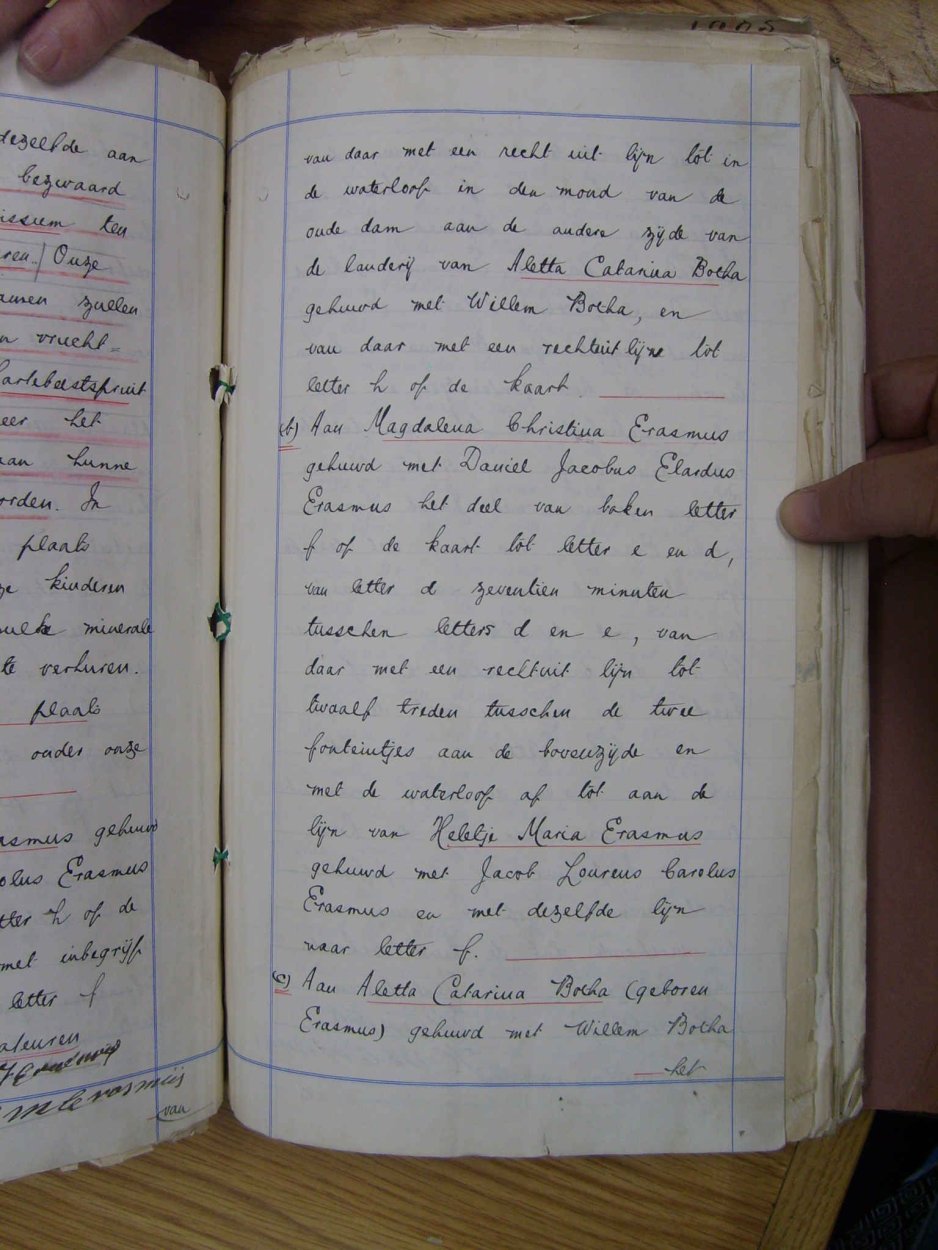 dezelfde aan
bezwaard
ten
Onze
zullen
vrucht=
Hartebeestspruit
het
aan hunne
worden. In
plaats
kinderen
minerale
te verhuren.
plaats
ouder onze
Erasmus gehuwd
Carolus Erasmus
letter h op de
met inbegrijp
letter f
van
van daar met een recht uit lijn tot in
de waterloop in den mond van de
oude dam aan de andere zijde van
de landerij van Aletta Catarina Botha
gehuwd met Willem Botha, en
van daar met een rechtuit lijne tot
letter h op de kaart.
(b) Aan Magdalena Christina Erasmus
gehuwd met Daniel Jacobus Elardus
Erasmus het deel van baken letter
f op de kaart tot letter e en d,
van letter d zeventien minuten
tusschen letters d en e, van
daar met een rechtuit lijn tot
twaalf treden tusschen de twee
fonteintjes aan de bovenzijde en
met de waterloop af tot aan de
lijn van Heletje Maria Erasmus
gehuwd met Jacob Lourens Carolus
Erasmus en met dezelfde lijn
naar letter f.
(c) Aan Aletta Catarina Botha (geboren
Erasmus) gehuwd met Willem Botha
het